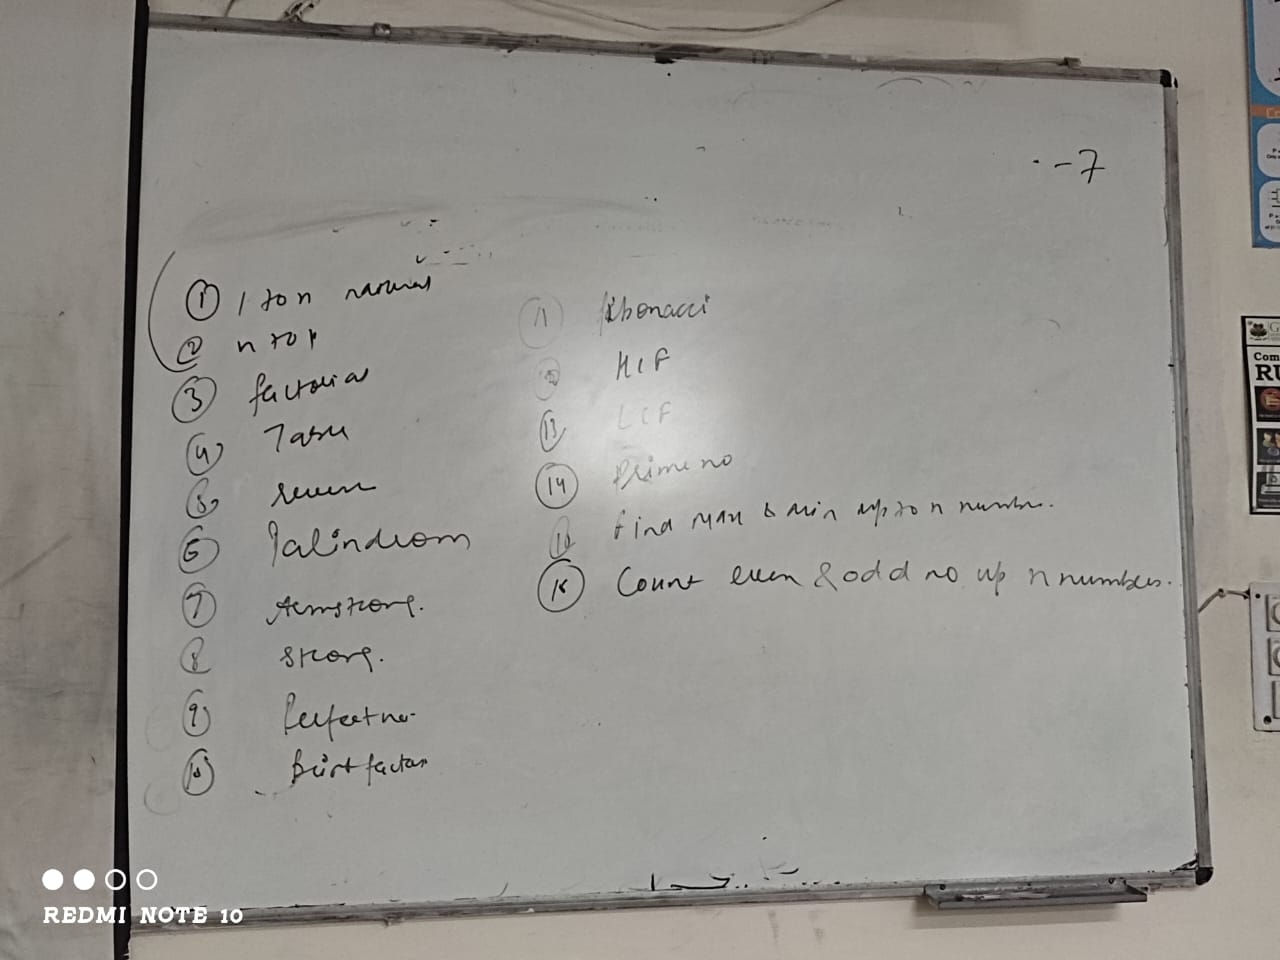 -7
① 1 to n natural
② n to 1
③ factorial
④ Table
⑤ reverse
⑥ Palindrom
⑦ Armstrong.
⑧ Strong.
⑨ Perfect no.
⑩ Print factor
⑪ fibonacci
⑫ HCF
⑬ LCF
⑭ Prime no
⑮ find max & min upto n number.
⑯ Count even & odd no. up n numbers.
Com
RU
REDMI NOTE 10